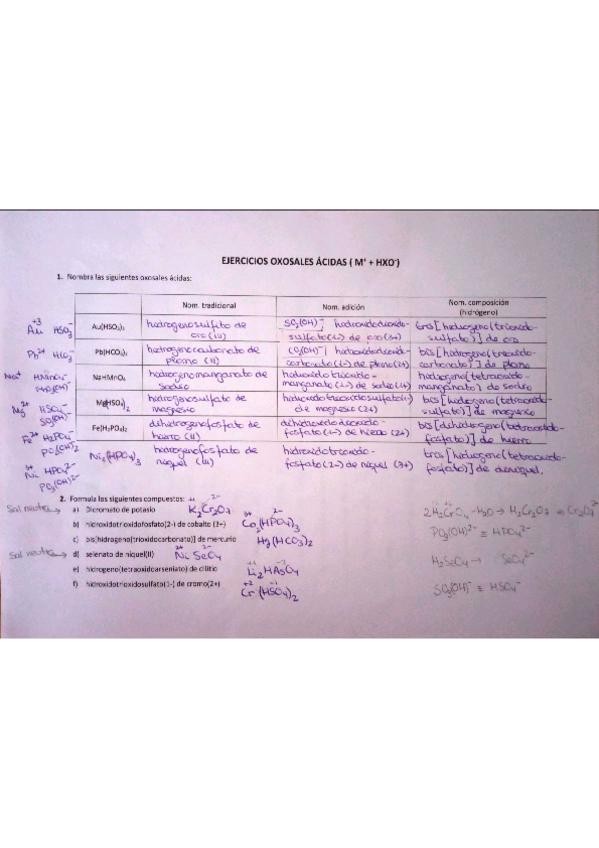 EJERCICIOS OXOSALES ÁCIDAS ( M⁺ + HXO⁻)
1. Nombra las siguientes oxosales ácidas:
Nom. tradicional Nom. adición Nom. composición (hidrógeno)
Au⁺³ HSO₃⁻ Au(HSO₃)₃ hidrogenosulfato de oro (III) SO₂(OH)⁻ hidroxidodioxido-sulfato(1-) de oro(3+) tris[hidrogeno(trioxido-sulfato)] de oro
Pb²⁺ HCO₃⁻ Pb(HCO₃)₂ hidrogenocarbonato de plomo (II) CO₂(OH)⁻ hidroxidodioxido-carbonato(1-) de plomo(2+) bis[hidrogeno(trioxido-carbonato)] de plomo
Na⁺ HMnO₄⁻ NaHMnO₄ hidrogenomanganato de sodio hidroxidotrioxido-manganato(1-) de sodio(1+) hidrogeno(tetraoxido-manganato) de sodio
Mg²⁺ HSO₄⁻ SO₃(OH)⁻ Mg(HSO₄)₂ hidrogenosulfato de magnesio hidroxidotrioxidosulfato(1-) de magnesio(2+) bis[hidrogeno(tetraoxido-sulfato)] de magnesio
Fe²⁺ H₂PO₄⁻ PO₂(OH)₂⁻ Fe(H₂PO₄)₂ dihidrogenofosfato de hierro (II) dihidroxidodioxido-fosfato(1-) de hierro (2+) bis[dihidrogeno(tetraoxido-fosfato)] de hierro
Ni³⁺ HPO₄²⁻ PO₃(OH)²⁻ Ni₂(HPO₄)₃ hidrogenofosfato de níquel (III) hidroxidotrioxido-fosfato(2-) de níquel (3+) tris[hidrogeno(tetraoxido-fosfato)] de diníquel.
2. Formula las siguientes compuestos:
Sal neutra → a) Dicromato de potasio K₂Cr₂O₇
b) hidroxidotrioxidofosfato(2-) de cobalto (3+) Co₂(HPO₄)₃
c) bis[hidrogeno(trioxidocarbonato)] de mercurio Hg(HCO₃)₂
Sal neutra → d) selenato de niquel(II) NiSeO₄
e) hidrogeno(tetraoxidoarseniato) de dilitio Li₂HAsO₄
f) hidroxidotrioxidosulfato(1-) de cromo(2+) Cr(HSO₄)₂
2H₂CrO₄ - H₂O → H₂Cr₂O₇ ⇒ Cr₂O₇²⁻
PO₃(OH)²⁻ ≡ HPO₄²⁻
H₂SeO₄ → SeO₄²⁻
SO₃(OH)⁻ ≡ HSO₄⁻